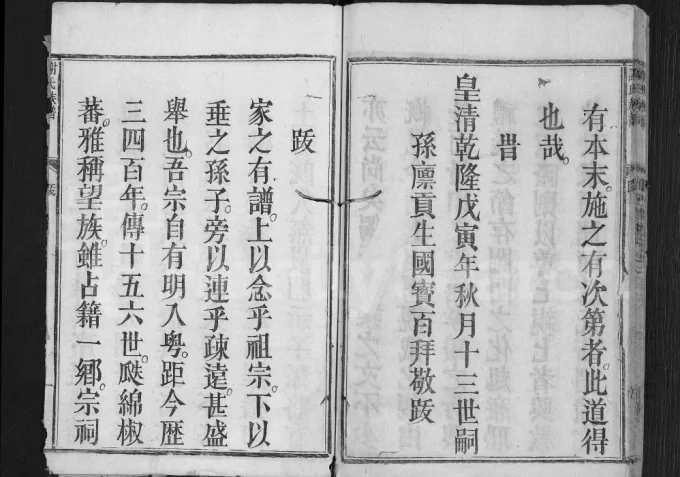 有本末。施之有次第者。此道得
也哉。
旹
皇清乾隆戊寅年秋月十三世嗣
孫廩貢生國寶百拜敬跋
跋
家之有譜。上以念乎祖宗。下以
垂之孫子。旁以連乎疎遠。甚盛
舉也。吾宗自有明入粵。距今歴
三四百年。傳十五六世。瓞綿椒
蕃。雅稱望族。雖占籍一鄉。宗祠